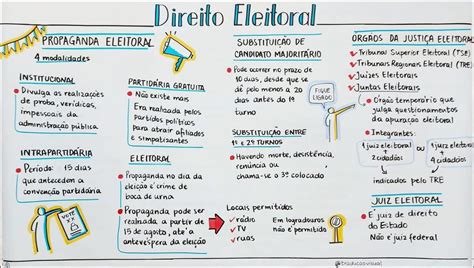 Direito Eleitoral
PROPAGANDA ELEITORAL
4 modalidades
INSTITUCIONAL
• Divulga as realizações
de proba, verídicas,
impessoais da
administração pública
INTRAPARTIDÁRIA
• Período: 15 dias
que antecedem a
convenção partidária
VOTE
PARTIDÁRIA GRATUITA
• Não existe mais
Era realizada pelos
Partidos políticos
para atrair afiliados
e simpatizantes
ELEITORAL
• Propaganda no dia da
eleição é crime de
boca de urna
• Propaganda pode ser
realizada a partir de
15 de agosto, até a
antevéspera da eleição
SUBSTITUIÇÃO DE
CANDIDATO MAJORITÁRIO
• Pode ocorrer no prazo de
10 dias, desde que se
dê pelo menos a 20
dias antes do 1º
turno
FIQUE
LIGADO
SUBSTITUIÇÃO ENTRE
1º E 2º TURNOS
• Havendo morte, desistência,
renúncia ou
chama-se o 3º colocado
Locais permitidos
✓ rádio
✓ TV
✓ ruas
Em logradouros
não é permitido
ORGÃOS DA JUSTIÇA ELEITORAL
✓ Tribunal Superior Eleitoral (TSE)
✓ Tribunais Regionais Eleitorais (TRE)
✓ Juízes Eleitorais
✓ Juntas Eleitorais
• Orgão temporário que
julga questionamentos
da apuração eleitoral
• Integrantes:
1 juiz eleitoral
+ 2 cidadãos
OU
1 juiz eleitoral
+ 4 cidadãos
indicados pelo TRE
JUIZ ELEITORAL
É juiz de direito
do Estado
Não é juiz federal